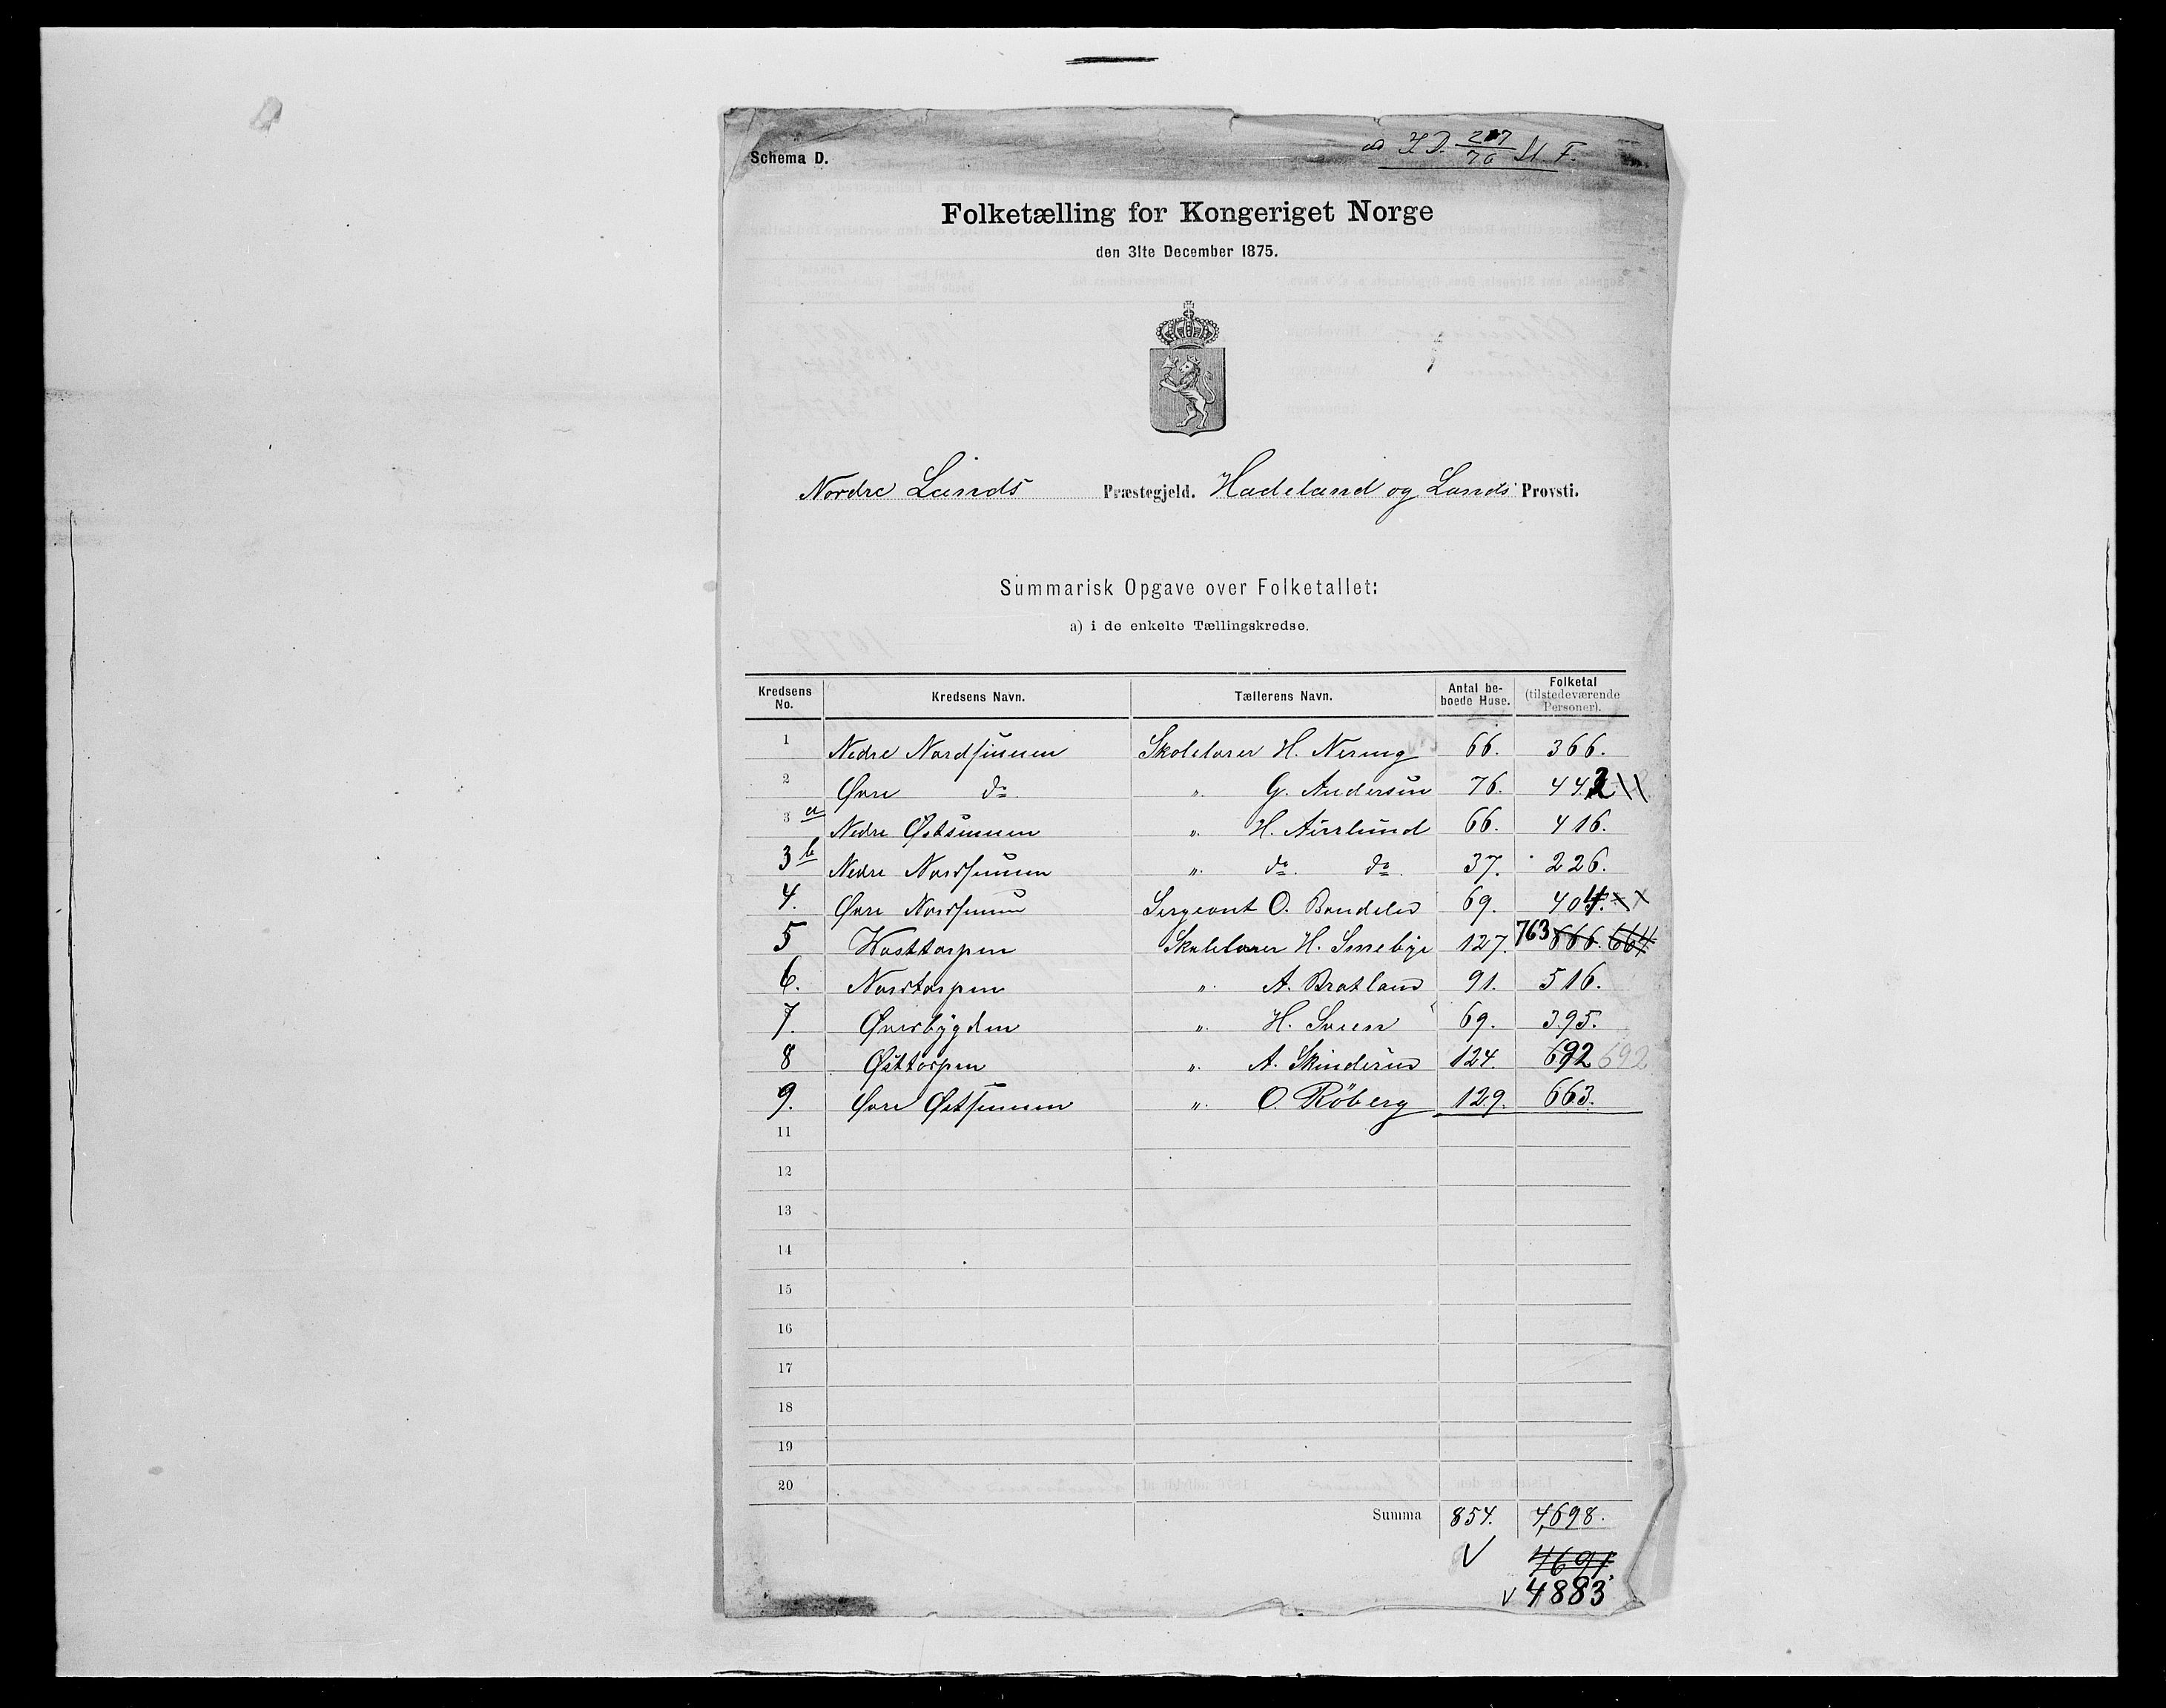 Schema D.
ad J. D. 217/70 M. F.
Folketælling for Kongeriget Norge
den 31te December 1875.
Nordre Lands Præstegjeld. Hadeland og Lands Provsti.
Summarisk Opgave over Folketallet:
a) i de enkelte Tællingskredse.
Kredsens No. Kredsens Navn. Tællerens Navn. Antal beboede Huse. Folketal (tilstedeværende Personer).
1 Nedre Nordsinnen Skolelærer H. Nering 66. 366.
2 Øvre do " G. Andersen 76. 442
3 a Nedre Østsinnen " H. 66. 416.
3 b Nedre Nordsinnen " do. do. 37. 226.
4. Øvre Nordsinnen Sergeant O. 69. 404.
5 Vesttorpen Skolelærer H. 127. 763 666. 664
6. Nordtorpen " A. Bratland 91. 516.
7. Øversbygden " H. 69. 395.
8 Østtorpen " A. 124. 692 692
9. Øvre Østsinnen " O. Röberg 129. 663.
11
12
13
14
15
16
17
18
19
20
Summa 854. 4,698.
4691
4883